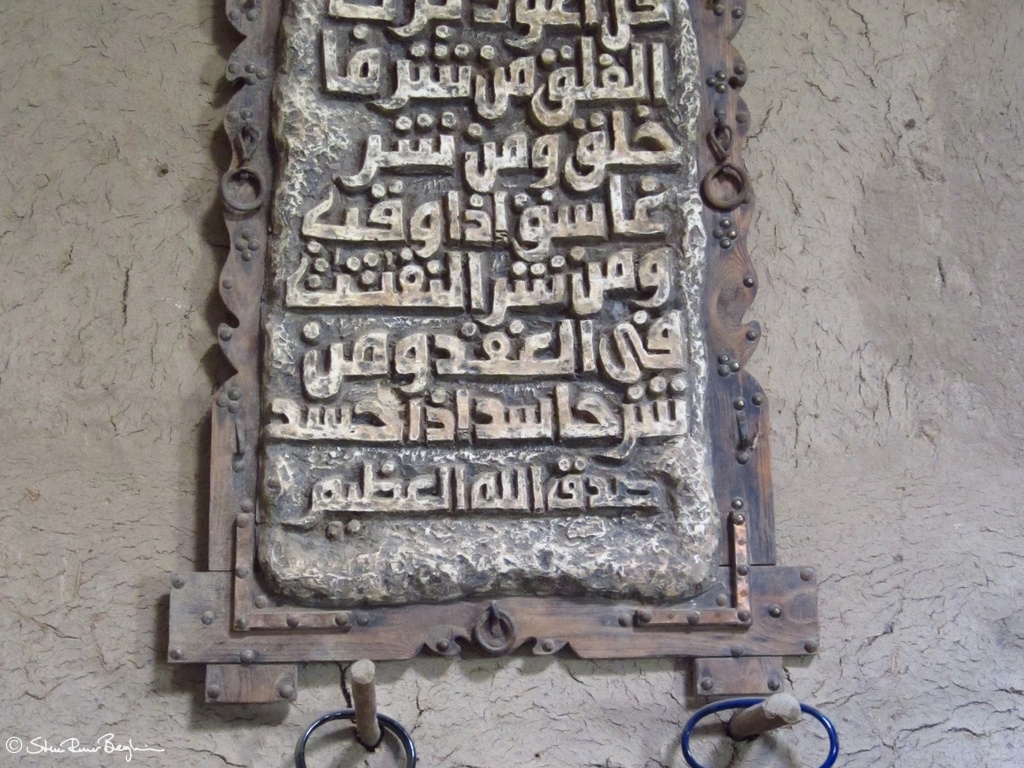 قل أعوذ برب
الفلق من شر ما
خلق ومن شر
غاسق إذا وقب
ومن شر النفثت
في العقد ومن
شر حاسد اذا حسد
صدق الله العظيم